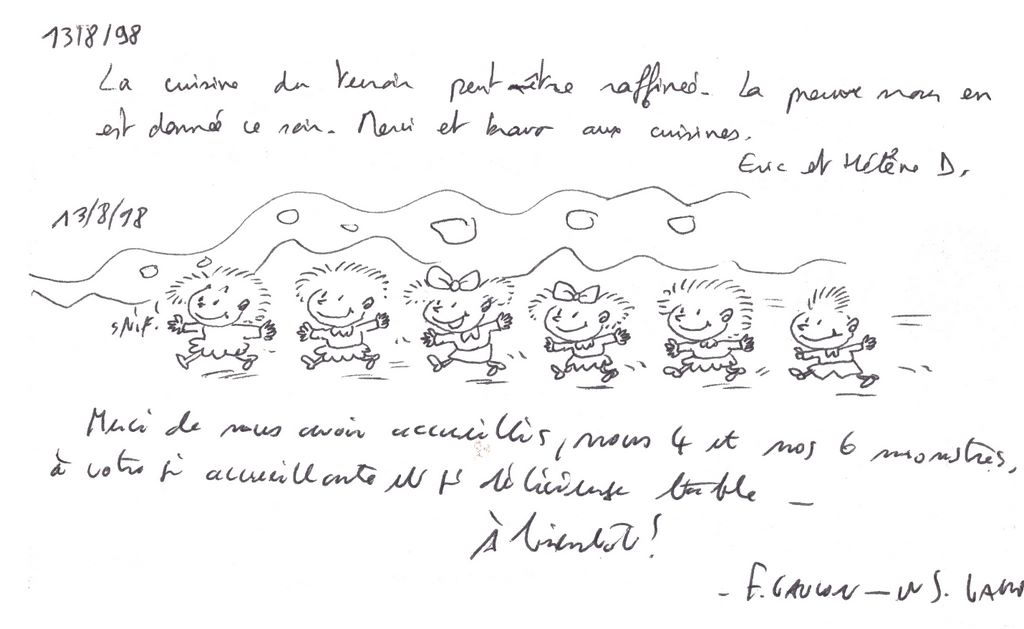 13/8/98
La cuisine du terroir peut être raffinée. La preuve nous en
est donnée ce soir. Merci et bravo aux cuisines.
Eric et Hélène D.
13/8/98
sNif!
Merci de nous avoir accueillis, nous 4 et nos 6 monstres,
à votre si accueillante et si délicieuse table _
À bientôt!